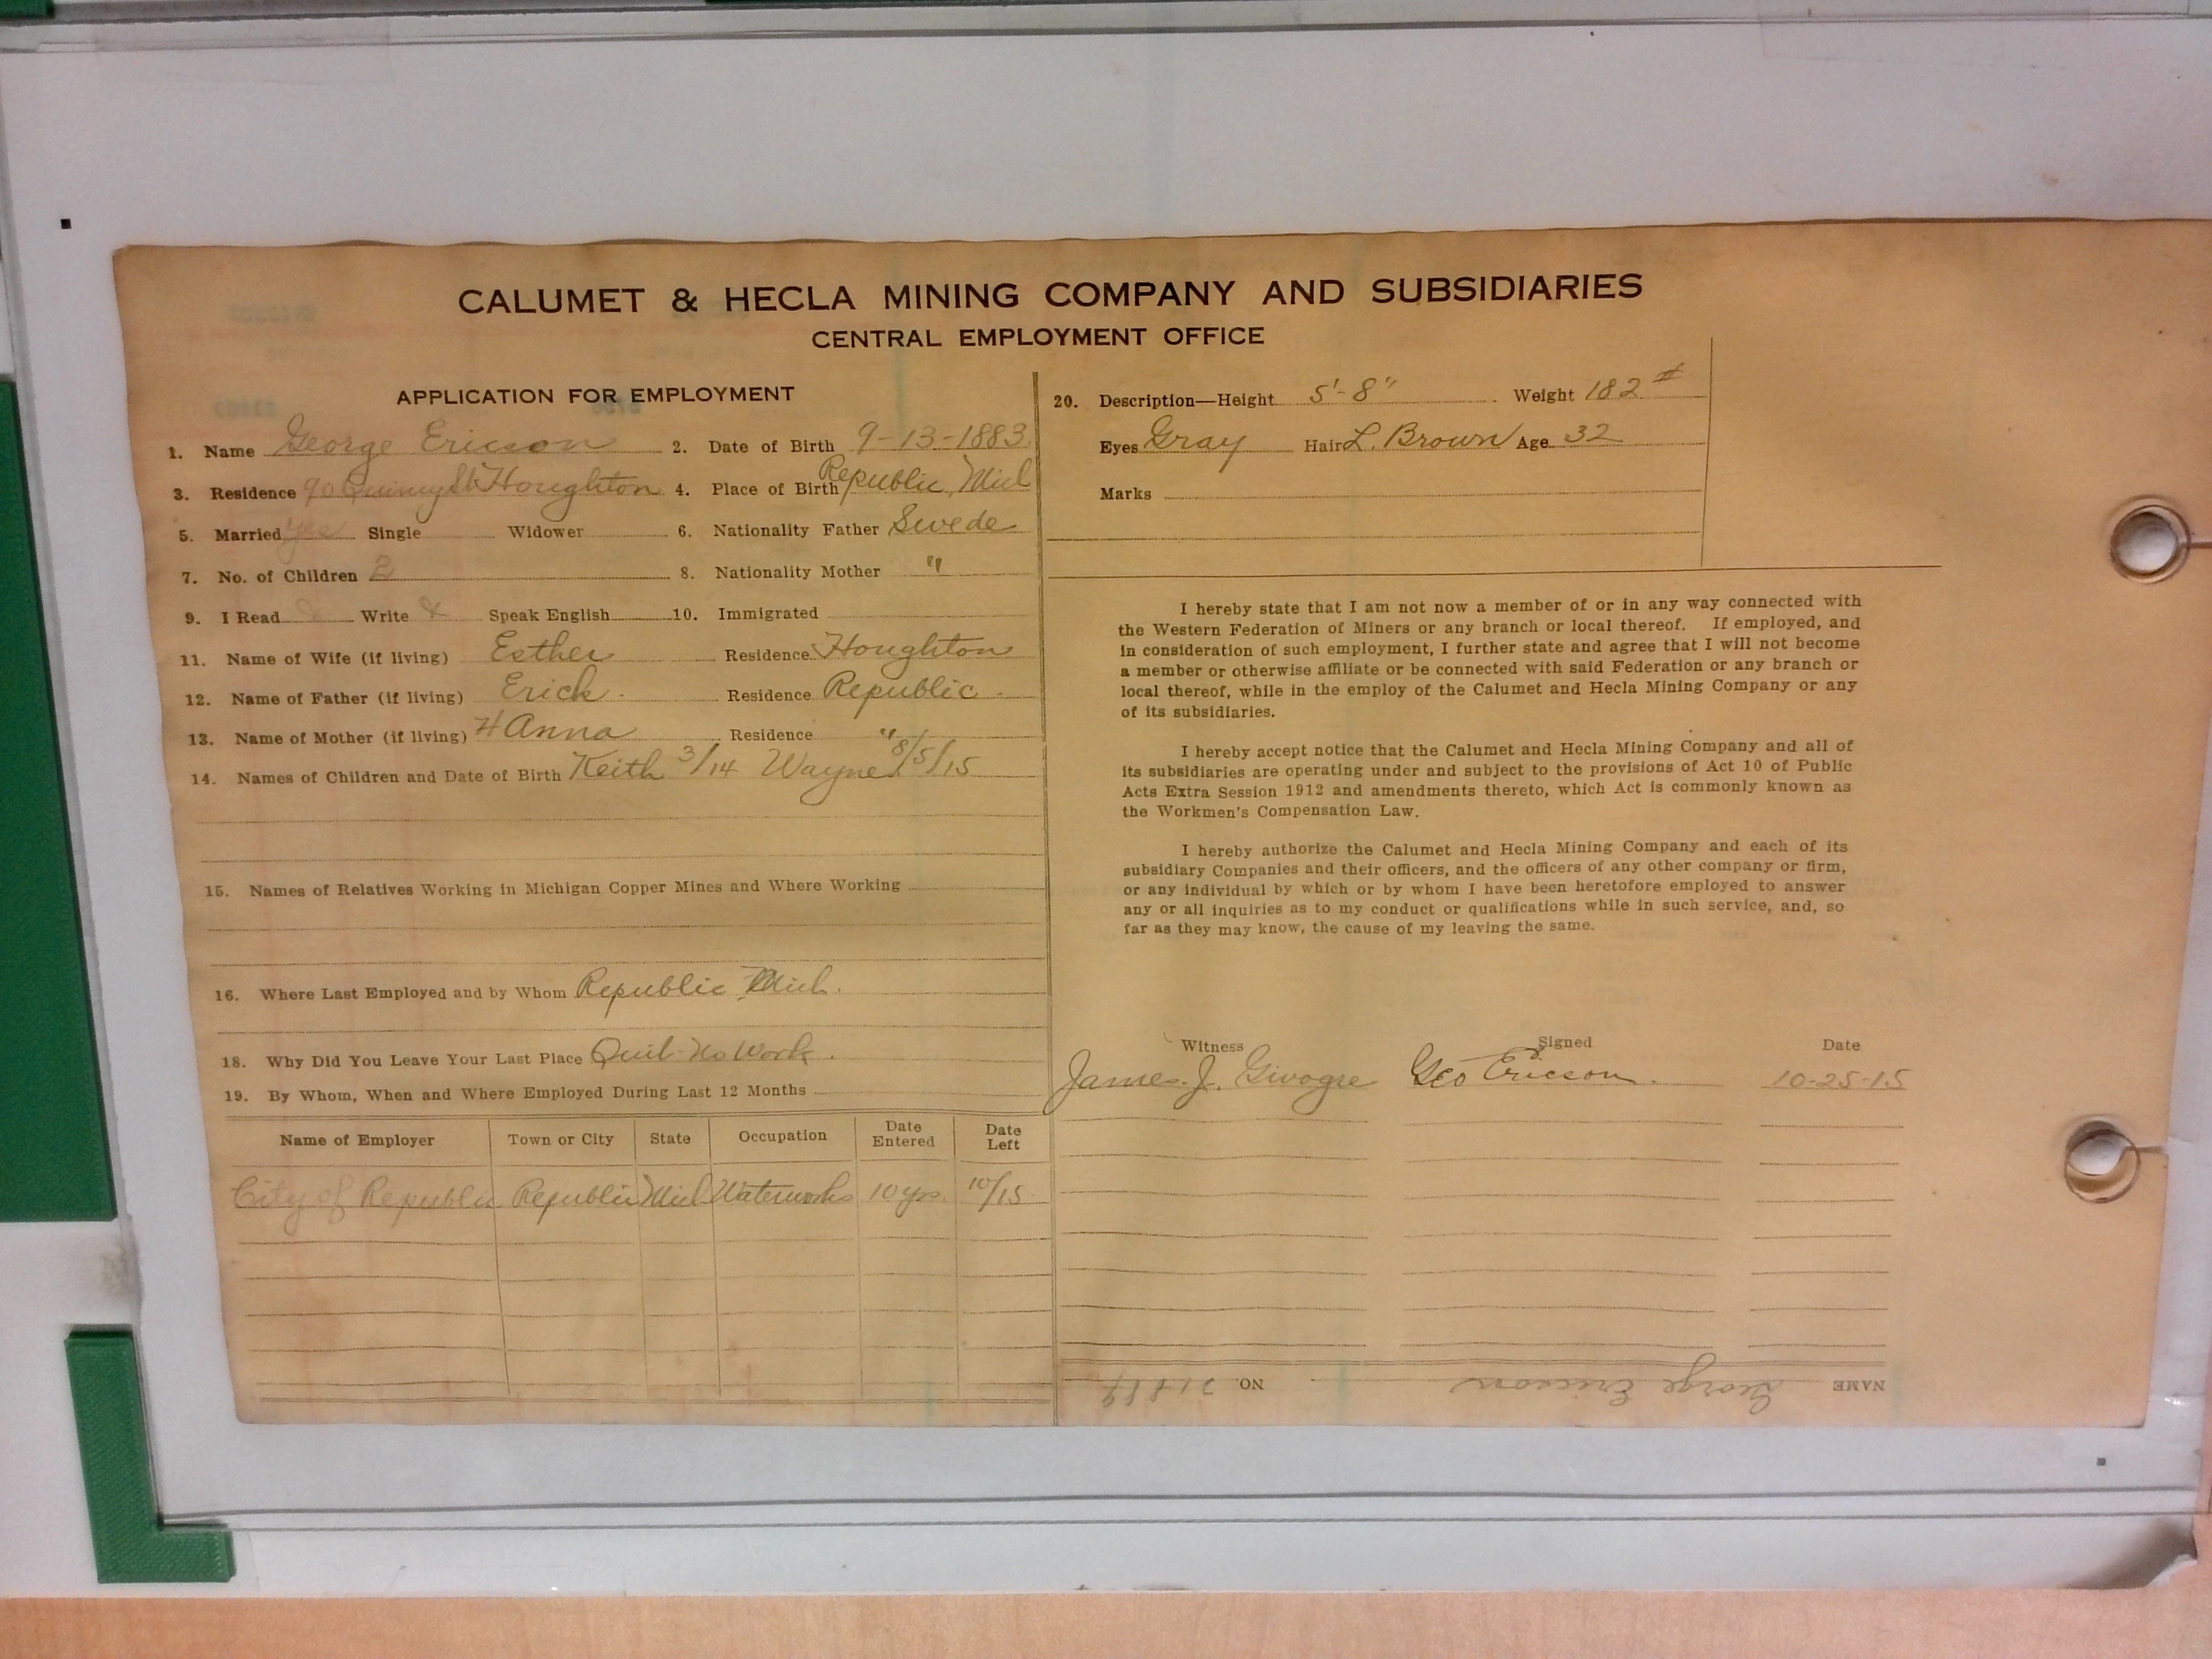 CALUMET & HECLA MINING COMPANY AND SUBSIDIARIES
CENTRAL EMPLOYMENT OFFICE
APPLICATION FOR EMPLOYMENT
1. Name George Ericson 2. Date of Birth 9-13-1883
3. Residence 90 Quincy St Houghton 4. Place of Birth Republic, Mich
5. Married yes Single Widower 6. Nationality Father Swede
7. No. of Children 2 8. Nationality Mother "
9. I Read Write Speak English 10. Immigrated
11. Name of Wife (if living) Esther Residence Houghton
12. Name of Father (if living) Erick Residence Republic
13. Name of Mother (if living) Anna Residence "
14. Names of Children and Date of Birth Keith 3/14 Wayne 8/5/15
15. Names of Relatives Working in Michigan Copper Mines and Where Working
16. Where Last Employed and by Whom Republic Mich.
18. Why Did You Leave Your Last Place Quit - No Work.
19. By Whom, When and Where Employed During Last 12 Months
Name of Employer Town or City State Occupation Date Entered Date Left
City of Republic Republic Mich Waterworks 10 yrs. 10/15
20. Description—Height 5'-8" Weight 182 #
Eyes Gray Hair L. Brown Age 32
Marks
I hereby state that I am not now a member of or in any way connected with
the Western Federation of Miners or any branch or local thereof. If employed, and
in consideration of such employment, I further state and agree that I will not become
a member or otherwise affiliate or be connected with said Federation or any branch or
local thereof, while in the employ of the Calumet and Hecla Mining Company or any
of its subsidiaries.
I hereby accept notice that the Calumet and Hecla Mining Company and all of
its subsidiaries are operating under and subject to the provisions of Act 10 of Public
Acts Extra Session 1912 and amendments thereto, which Act is commonly known as
the Workmen's Compensation Law.
I hereby authorize the Calumet and Hecla Mining Company and each of its
subsidiary Companies and their officers, and the officers of any other company or firm,
or any individual by which or by whom I have been heretofore employed to answer
any or all inquiries as to my conduct or qualifications while in such service, and, so
far as they may know, the cause of my leaving the same.
Witness Signed Date
James J. Geo Ericson. 10-25-15
NAME George Ericson NO.